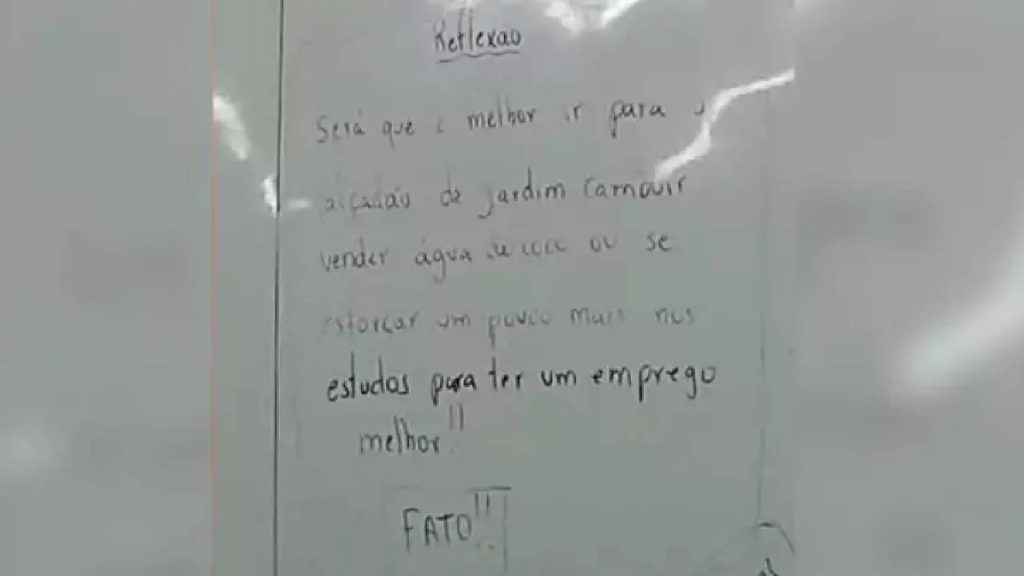 Reflexão
Será que é melhor ir para o
calçadão de jardim Camburi
vender água de coco ou se
esforçar um pouco mais nos
estudos para ter um emprego
melhor!!
FATO!!